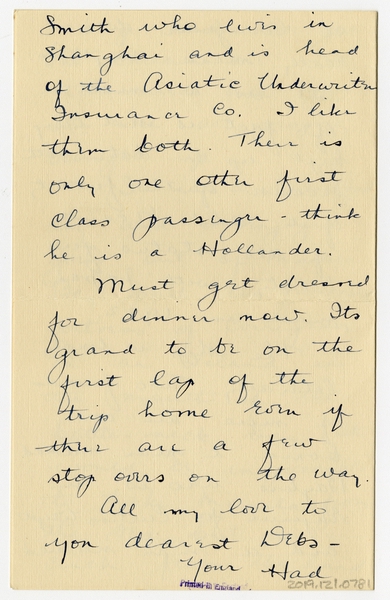 Smith who livis in
Shanghai and is head
of the Asiatic Underwriters
Insurance Co. I like
them both. There is
only one other first
class passenger - think
he is a Hollander.
Must get dressed
for dinner now. Its
grand to be on the
first lap of the
trip home even if
there are a few
stop overs on the way.
All my love to
you dearest Debs -
Your Had
Printed in England
2019.121.0781